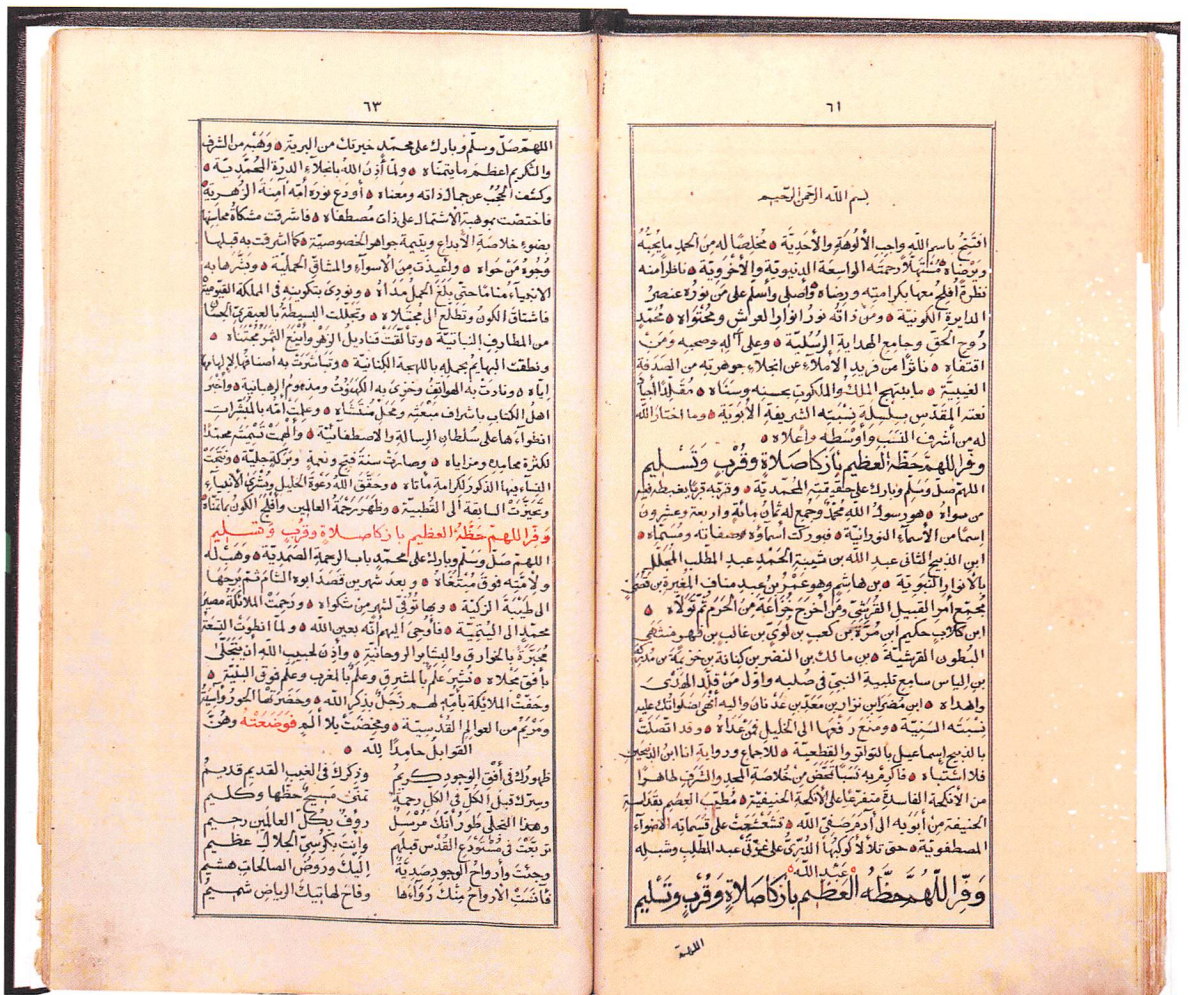 ٦١
بسم الله الرحمن الرحيم
افتتح باسم الله واجب الألوهة والأحدية • مخلصًا له من الحمد ما يحبه
ويرضاه • مستهلا رحمته الواسعة الدنيوية والأخروية • ناظرا منه
نظرة أفلح معها بكرامته ورضاه • وأصلي وأسلم على من نوره عنصر
الدايرة الكونية • ومن ذاته نور انوار العرش ومحتواه • محمد
روح الحق وجامع الهداية الرسلية • وعلى آله وصحبه ومن
اقتفاه • ناثرا من فريد الإملاء عن انجلاء جوهريته من الصدفة
الغيبية • ما يبتهج الملك والملكوت بحسنه وسناه • مقلدا لجياد
نعته المقدس بسلسلة نسبته الشريفة الأبوية • وما اختار الله
له من أشرف النسب وأوسطه وأعلاه •
وفر اللهم حظه العظيم بأزكا صلاة وقرب وتسليم
اللهم صل وسلم وبارك على حقيقته المحمدية • وقربه قربا يغبطه فيه
من سواه • هو رسول الله محمد وجمع له ثمان مائة واربعة وعشرون
إسما من الأسماء النورانية • فبوركت أسماؤه وصفاته ومسماه •
ابن الذبيح الثاني عبد الله بن شيبة الحمد عبد المطلب المجلل
بالأنوار النبوية • بن هاشم وهو عمرو بن عبد مناف المغيرة بن قصي
مجمع أمر القبيل القرشي ومن أخرج خزاعة من الحرم ثم تولاه •
ابن كلاب حكيم ابن مرة بن كعب بن لوي بن غالب بن فهر منتهى
البطون القرشية • بن مالك بن النضر بن كنانة بن خزيمة بن مدركة
بن الياس سامع تلبية النبي في صلبه واول من قلد الهدى
واهداه • ابن مضر ابن نزار بن معد بن عدنان واليه أنهى صلوات الله عليه
نسبته السنية • ومنع رفعها الى الخليل فمن عداه • وقد اتصلت
بالذبيح إسماعيل بالتواتر والقطعية • للاجماع ورواية انا ابن الذبيحين
فلا اشتباه • فاكرم به نسبا تمحض من خلاصة المجد والشرف طاهرا
من الأنكحة الفاسدة متفرعا على الأنكحة الحنيفية • مطيب العصم بقداسة
الحنيفة من أبويه الى أدم صفي الله • تشعشعت على قسماته الاضواء
المصطفوية • حتى تلالا كوكبها الدري على غرتي عبد المطلب وشبله
عبد الله
وفر اللهم حظه العظيم بأزكا صلاة وقرب وتسليم
اللهم
٦٣
اللهم صل وسلم وبارك على محمد خيرتك من البرية • وهبه من الشرف
والتكريم اعظم ما يتمناه • ولما أذن الله بانجلاء الدرة المحمدية •
وكشف الحجب عن جمال ذاته ومعناه • أودع نوره أمه آمنة الزهرية
فاختصت بموهبة الاشتمال على ذات مصطفاه • فاشرقت مشكاة محاسنها
بضوء خلاصة الأبداع ويتيمة جواهر الخصوصية • كما اشرقت به قبلها
وجوه من حواه • واعيذت من الاسواء والمشاق الحملية • وبشرها به
الانبياء مناما حتى بلغ الحمل مداه • ونودي بتكوينه في المملكة القيومية
فاشتاق الكون وتطلع الى مجتلاه • وتجللت البسيطة بالعبقري الحسان
من المطارف النباتية • وتألقت قناديل الزهر وأينع الثمر مجتناه •
ونطقت البهائم بحمله باللهجة الكنانية • وتباشرت به أصنافها لإلهامها
اياه • ونادت به الهواتف وخزي به الكهنوت ومذموم الرهبانية • وأخبر
اهل الكتاب باشراف مبعثه ومحل منتشاه • وعلمت امه بالمبشرات
انطواءها على سلطان الرسالة والاصطفائية • والهمت تسميته محمدا
لكثرة محامده ومزاياه • وصارت سنة فتح ونعمة وبركة جلية •
النساء فيها الذكور لكرامة مأتاه • وحقق الله دعوة الخليل وبشرى الأنبياء
وتحيزت السابقة الى القطبية • وظهر رحمة العالمين وأفلح الكون بما تمناه
وفر اللهم حظه العظيم بأزكا صلاة وقرب وتسليم
اللهم صل وسلم وبارك على محمد باب الرحمة الصمدية • وهب له
ولامته فوق مبتغاه • وبعد شهرين قصد ابوه الشام ثم برحها
الى طيبة الزكية • وبها توفي لشهر من شكواه • ورحمت الملائكة مصير
محمد الى اليتمية • فأوحى اليهم أنه بعين الله • ولما انطوت التسعة
مخبرة بالخوارق والبشاير الروحانية • وأذن لحبيب الله أن يتجلى
بأفق مجلاه • نشر علم بالمشرق وعلم بالمغرب وعلم فوق البنية •
وحفت الملائكة بأمه لهم زجل بذكر الله • وحضرتها الحور وآسية
ومريم من العوالم القدسية • ومخضت بلا ألم فوضعته وهن
القوابل حامدا لله •
ظهورك في أفق الوجود كريم وذكرك في الغيب القديم قديم
وسرك قبل الكل في الكل رحمة تمنى مسيح حظها وكليم
وهذا التجلي طور أنك مرسل رؤف بكل العالمين رحيم
تربعت في مستودع القدس قبلهم وأنت بكرسي الجلال عظيم
وجئت وأرواح الوجود صدية إليك وروض الصالحات هشيم
فآنست الارواح منك رواءها وفاح لهاتيك الرياض شميم